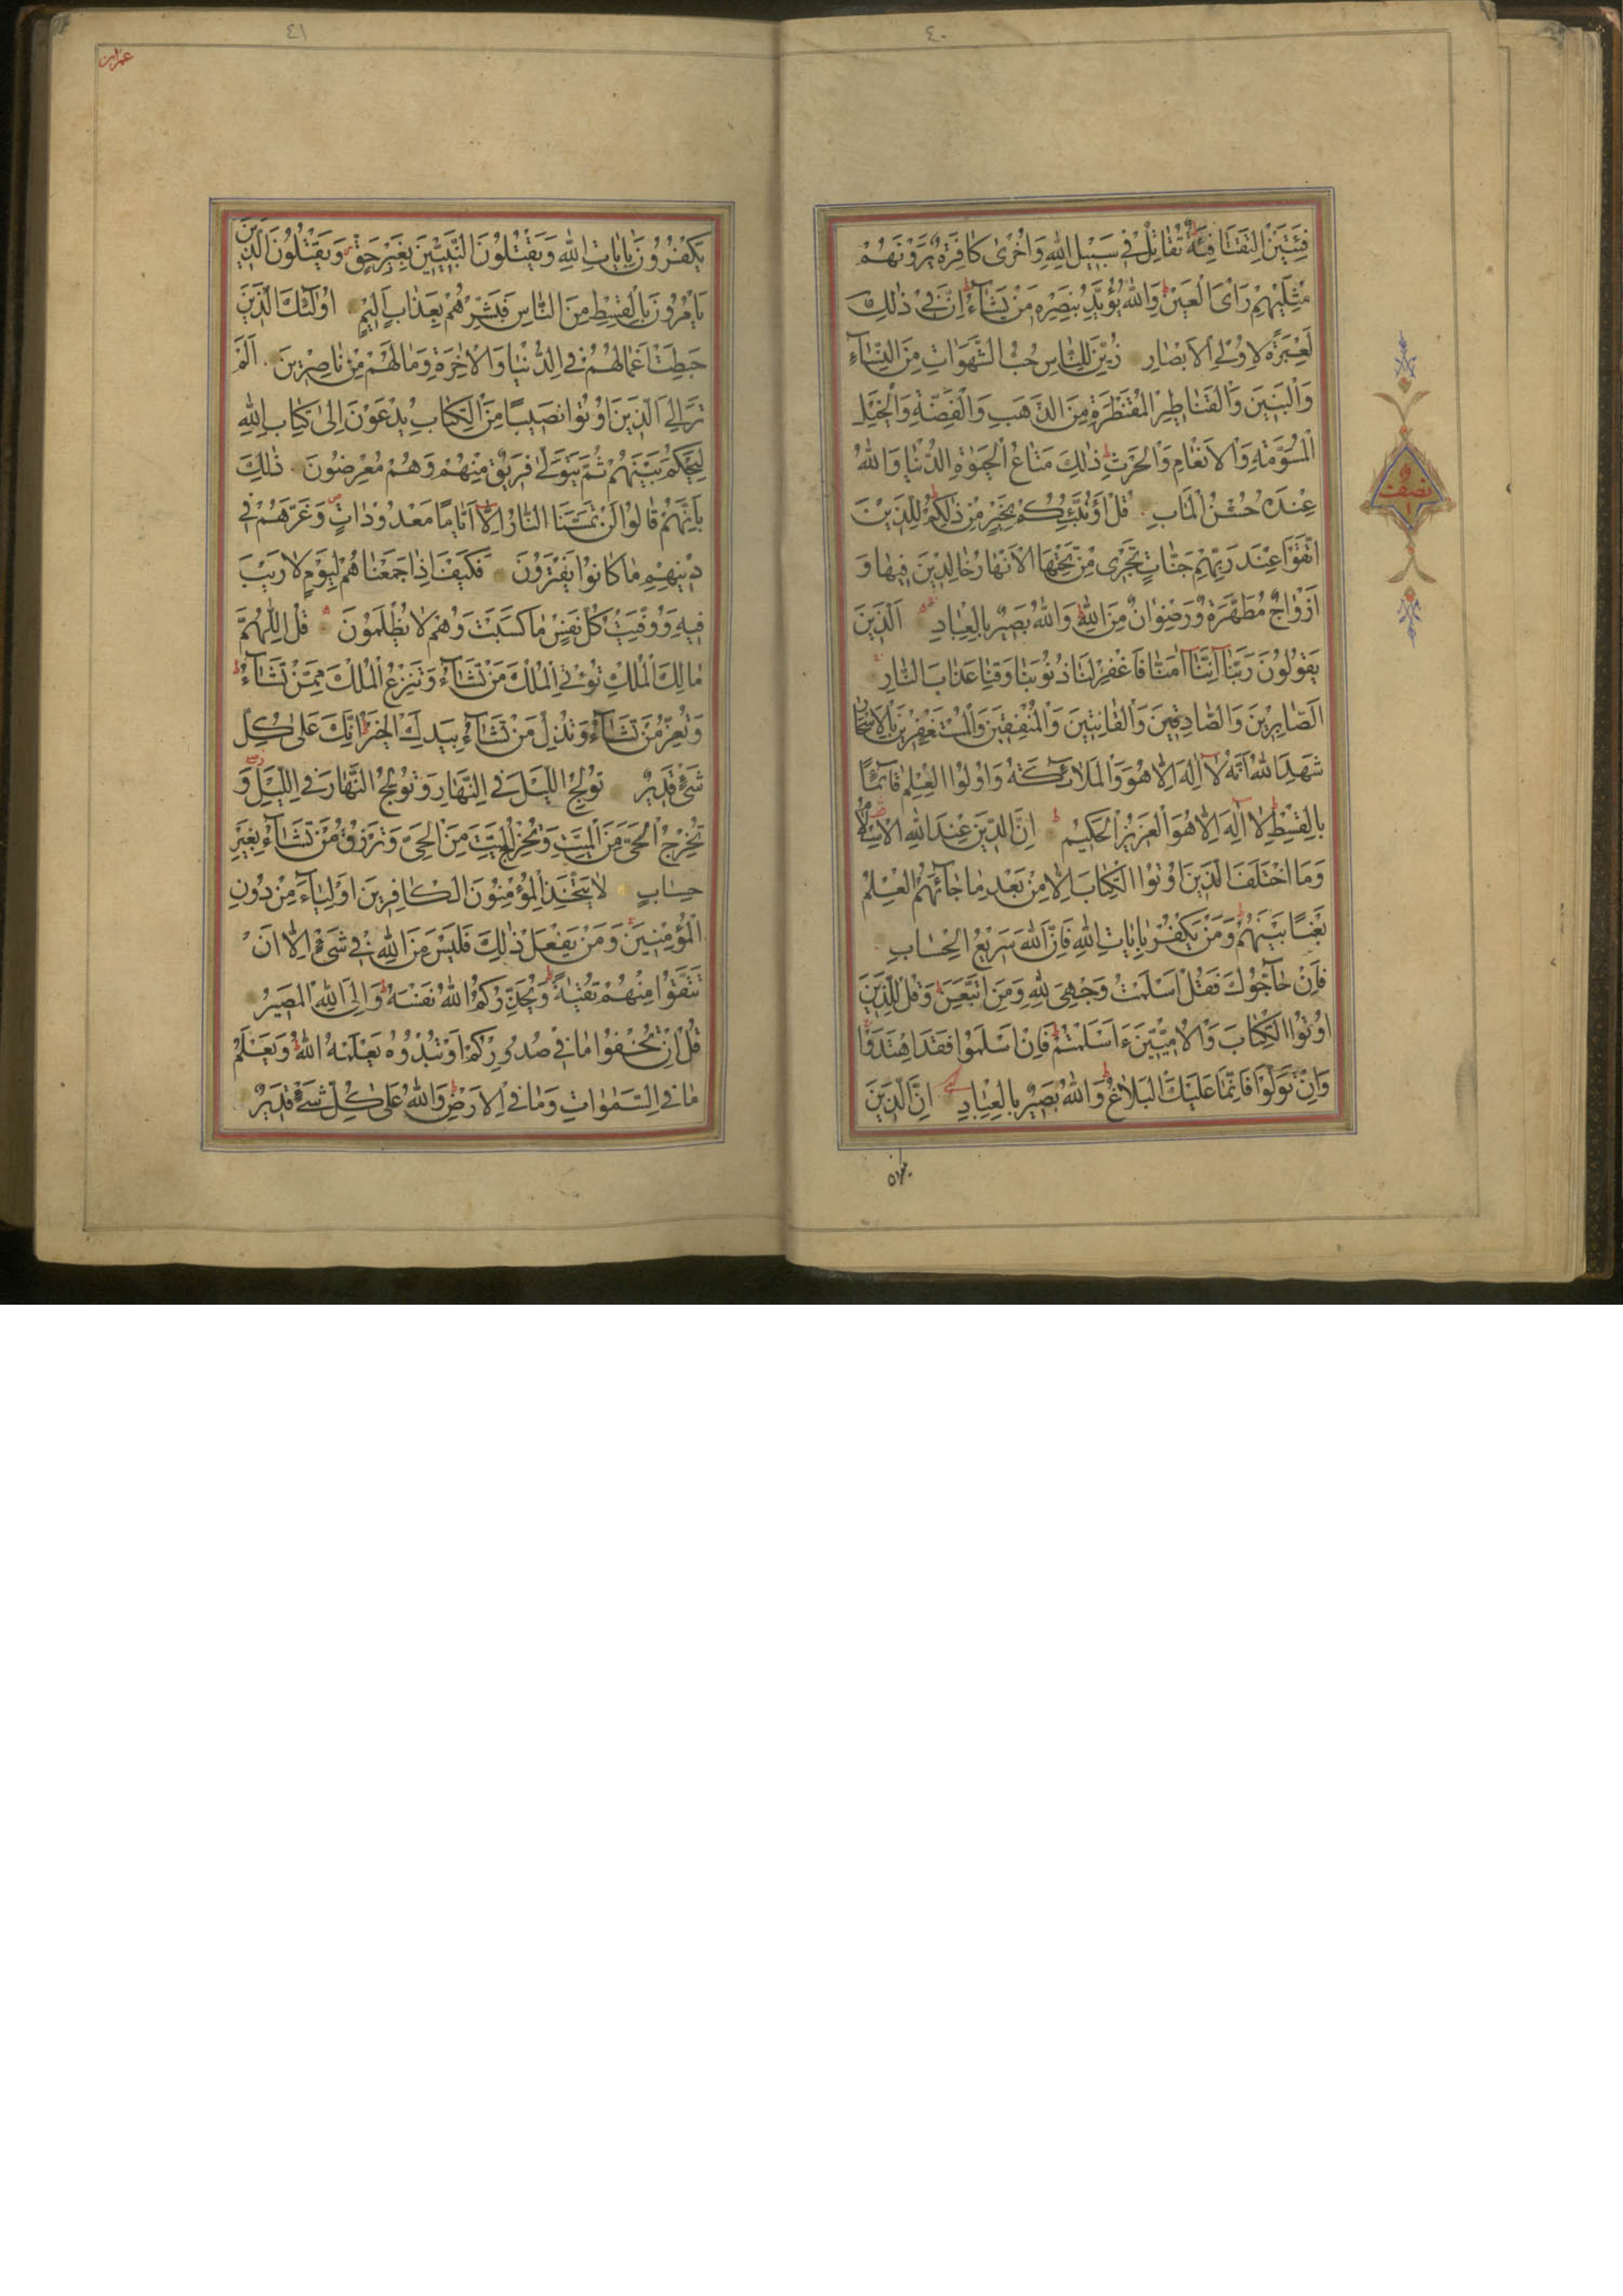 ٤٠
فِئَتَيْنِ الْتَقَتَا فِئَةٌ تُقَاتِلُ فِي سَبِيلِ اللهِ وَأُخْرَى كَافِرَةٌ يَرَوْنَهُمْ
مِثْلَيْهِمْ رَأْىَ الْعَيْنِ وَاللهُ يُؤَيِّدُ بِنَصْرِهِ مَنْ يَشَاءُ إِنَّ فِي ذَلِكَ
لَعِبْرَةً لِأُولِي الْأَبْصَارِ زُيِّنَ لِلنَّاسِ حُبُّ الشَّهَوَاتِ مِنَ النِّسَاءِ
وَالْبَنِينَ وَالْقَنَاطِيرِ الْمُقَنْطَرَةِ مِنَ الذَّهَبِ وَالْفِضَّةِ وَالْخَيْلِ
الْمُسَوَّمَةِ وَالْأَنْعَامِ وَالْحَرْثِ ذَلِكَ مَتَاعُ الْحَيَوةِ الدُّنْيَا وَاللهُ
عِنْدَهُ حُسْنُ الْمَآبِ قُلْ أَؤُنَبِّئُكُمْ بِخَيْرٍ مِنْ ذَلِكُمْ لِلَّذِينَ
اتَّقَوْا عِنْدَ رَبِّهِمْ جَنَّاتٌ تَجْرِي مِنْ تَحْتِهَا الْأَنْهَارُ خَالِدِينَ فِيهَا وَ
أَزْوَاجٌ مُطَهَّرَةٌ وَرِضْوَانٌ مِنَ اللهِ وَاللهُ بَصِيرٌ بِالْعِبَادِ اَلَّذِينَ
يَقُولُونَ رَبَّنَا إِنَّنَا آمَنَّا فَاغْفِرْ لَنَا ذُنُوبَنَا وَقِنَا عَذَابَ النَّارِ
اَلصَّابِرِينَ وَالصَّادِقِينَ وَالْقَانِتِينَ وَالْمُنْفِقِينَ وَالْمُسْتَغْفِرِينَ بِالْأَسْحَارِ
شَهِدَ اللهُ أَنَّهُ لَا إِلَهَ إِلَّا هُوَ وَالْمَلَائِكَةُ وَأُولُوا الْعِلْمِ قَائِمًا
بِالْقِسْطِ لَا إِلَهَ إِلَّا هُوَ الْعَزِيزُ الْحَكِيمُ إِنَّ الدِّينَ عِنْدَ اللهِ الْإِسْلَامُ
وَمَا اخْتَلَفَ الَّذِينَ أُوتُوا الْكِتَابَ إِلَّا مِنْ بَعْدِ مَا جَاءَهُمُ الْعِلْمُ
بَغْيًا بَيْنَهُمْ وَمَنْ يَكْفُرْ بِآيَاتِ اللهِ فَإِنَّ اللهَ سَرِيعُ الْحِسَابِ
فَإِنْ حَاجُّوكَ فَقُلْ أَسْلَمْتُ وَجْهِيَ لِلهِ وَمَنِ اتَّبَعَنِ وَقُلْ لِلَّذِينَ
أُوتُوا الْكِتَابَ وَالْأُمِّيِّينَ ءَأَسْلَمْتُمْ فَإِنْ أَسْلَمُوا فَقَدِ اهْتَدَوْا
وَإِنْ تَوَلَّوْا فَإِنَّمَا عَلَيْكَ الْبَلَاغُ وَاللهُ بَصِيرٌ بِالْعِبَادِ إِنَّ الَّذِينَ
نصف
٤١
عمران
يَكْفُرُونَ بِآيَاتِ اللهِ وَيَقْتُلُونَ النَّبِيِّينَ بِغَيْرِ حَقٍّ وَيَقْتُلُونَ الَّذِينَ
يَأْمُرُونَ بِالْقِسْطِ مِنَ النَّاسِ فَبَشِّرْهُمْ بِعَذَابٍ أَلِيمٍ أُولَئِكَ الَّذِينَ
حَبِطَتْ أَعْمَالُهُمْ فِي الدُّنْيَا وَالْآخِرَةِ وَمَا لَهُمْ مِنْ نَاصِرِينَ اَلَمْ
تَرَ إِلَى الَّذِينَ أُوتُوا نَصِيبًا مِنَ الْكِتَابِ يُدْعَوْنَ إِلَى كِتَابِ اللهِ
لِيَحْكُمَ بَيْنَهُمْ ثُمَّ يَتَوَلَّى فَرِيقٌ مِنْهُمْ وَهُمْ مُعْرِضُونَ ذَلِكَ
بِأَنَّهُمْ قَالُوا لَنْ تَمَسَّنَا النَّارُ إِلَّا أَيَّامًا مَعْدُودَاتٍ وَغَرَّهُمْ فِي
دِينِهِمْ مَا كَانُوا يَفْتَرُونَ فَكَيْفَ إِذَا جَمَعْنَاهُمْ لِيَوْمٍ لَا رَيْبَ
فِيهِ وَوُفِّيَتْ كُلُّ نَفْسٍ مَا كَسَبَتْ وَهُمْ لَا يُظْلَمُونَ قُلِ اللَّهُمَّ
مَالِكَ الْمُلْكِ تُؤْتِي الْمُلْكَ مَنْ تَشَاءُ وَتَنْزِعُ الْمُلْكَ مِمَّنْ تَشَاءُ
وَتُعِزُّ مَنْ تَشَاءُ وَتُذِلُّ مَنْ تَشَاءُ بِيَدِكَ الْخَيْرُ إِنَّكَ عَلَى كُلِّ
شَيْءٍ قَدِيرٌ تُولِجُ اللَّيْلَ فِي النَّهَارِ وَتُولِجُ النَّهَارَ فِي اللَّيْلِ وَ
تُخْرِجُ الْحَيَّ مِنَ الْمَيِّتِ وَتُخْرِجُ الْمَيِّتَ مِنَ الْحَيِّ وَتَرْزُقُ مَنْ تَشَاءُ بِغَيْرِ
حِسَابٍ لَا يَتَّخِذِ الْمُؤْمِنُونَ الْكَافِرِينَ أَوْلِيَاءَ مِنْ دُونِ
الْمُؤْمِنِينَ وَمَنْ يَفْعَلْ ذَلِكَ فَلَيْسَ مِنَ اللهِ فِي شَيْءٍ إِلَّا أَنْ
تَتَّقُوا مِنْهُمْ تُقَيةً وَيُحَذِّرُكُمُ اللهُ نَفْسَهُ وَإِلَى اللهِ الْمَصِيرُ
قُلْ إِنْ تُخْفُوا مَا فِي صُدُورِكُمْ أَوْ تُبْدُوهُ يَعْلَمْهُ اللهُ وَيَعْلَمُ
مَا فِي السَّمَوَاتِ وَمَا فِي الْأَرْضِ وَاللهُ عَلَى كُلِّ شَيْءٍ قَدِيرٌ